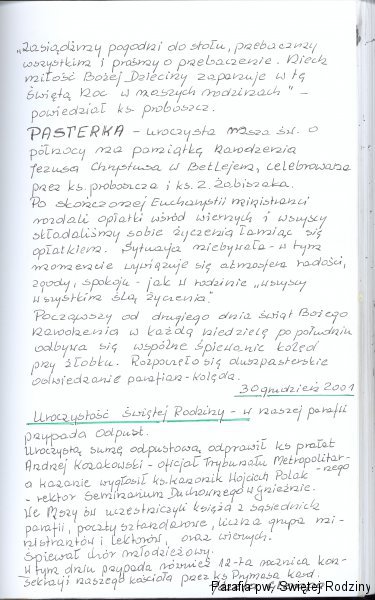 „Zasiądźmy pogodni do stołu, przebaczmy
wszystkim i prośmy o przebaczenie. Niech
miłość Bożej Dzieciny zapanuje w tę
świętą Noc w naszych rodzinach" -
powiedział ks. proboszcz.
PASTERKA - uroczysta Msza św. o
północy na pamiątkę Narodzenia
Jezusa Chrystusa w Betlejem, celebrowana
przez ks. proboszcza i ks. Z. Żabiszaka.
Po skończonej Eucharystii ministranci
rozdali opłatki wśród wiernych i wszyscy
składaliśmy sobie życzenia łamiąc się
opłatkiem. Sytuacja niebywała - w tym
momencie wywiązuje się atmosfera radości,
zgody, spokoju - jak w rodzinie „wszyscy
wszystkim ślą życzenia".
Począwszy od drugiego dnia świąt Bożego
Narodzenia w każdą niedzielę po południu
odbywa się wspólne śpiewanie kolęd
przy żłobku. Rozpoczęło się duszpasterskie
odwiedzanie parafian - kolęda.
30 grudzień 2001
Uroczystość Świętej Rodziny - w naszej parafii
przypada Odpust.
Uroczystą sumę odpustową odprawił ks prałat
Andrzej Kozakowski - oficjał Trybunału Metropolitar-
nego
a kazanie wygłosił ks. kanonik Wojciech Polak -
- rektor Seminarium Duchownego w Gnieźnie.
We Mszy św uczestniczyli księża z sąsiednich
parafii, poczty sztandarowe, liczna grupa mi-
nistrantów i lektorów, oraz wiernych.
Śpiewał chór młodzieżowy.
W tym dniu przypada również 12-ta rocznica kon-
sekracji naszego kościoła przez ks Prymasa Kard.
Parafia pw. Świętej Rodziny